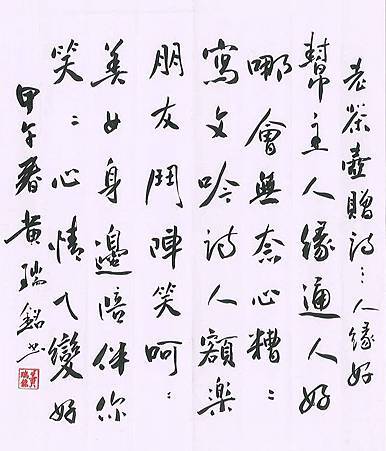 老茶壺贈詩:人緣好
幫主人緣通人好
哪會無奈心糟:
寫文吟詩人額樂
朋友鬥陣笑呵:
美女身邊陪伴你
笑:心情ㄟ變好
甲午春黃瑞銘书